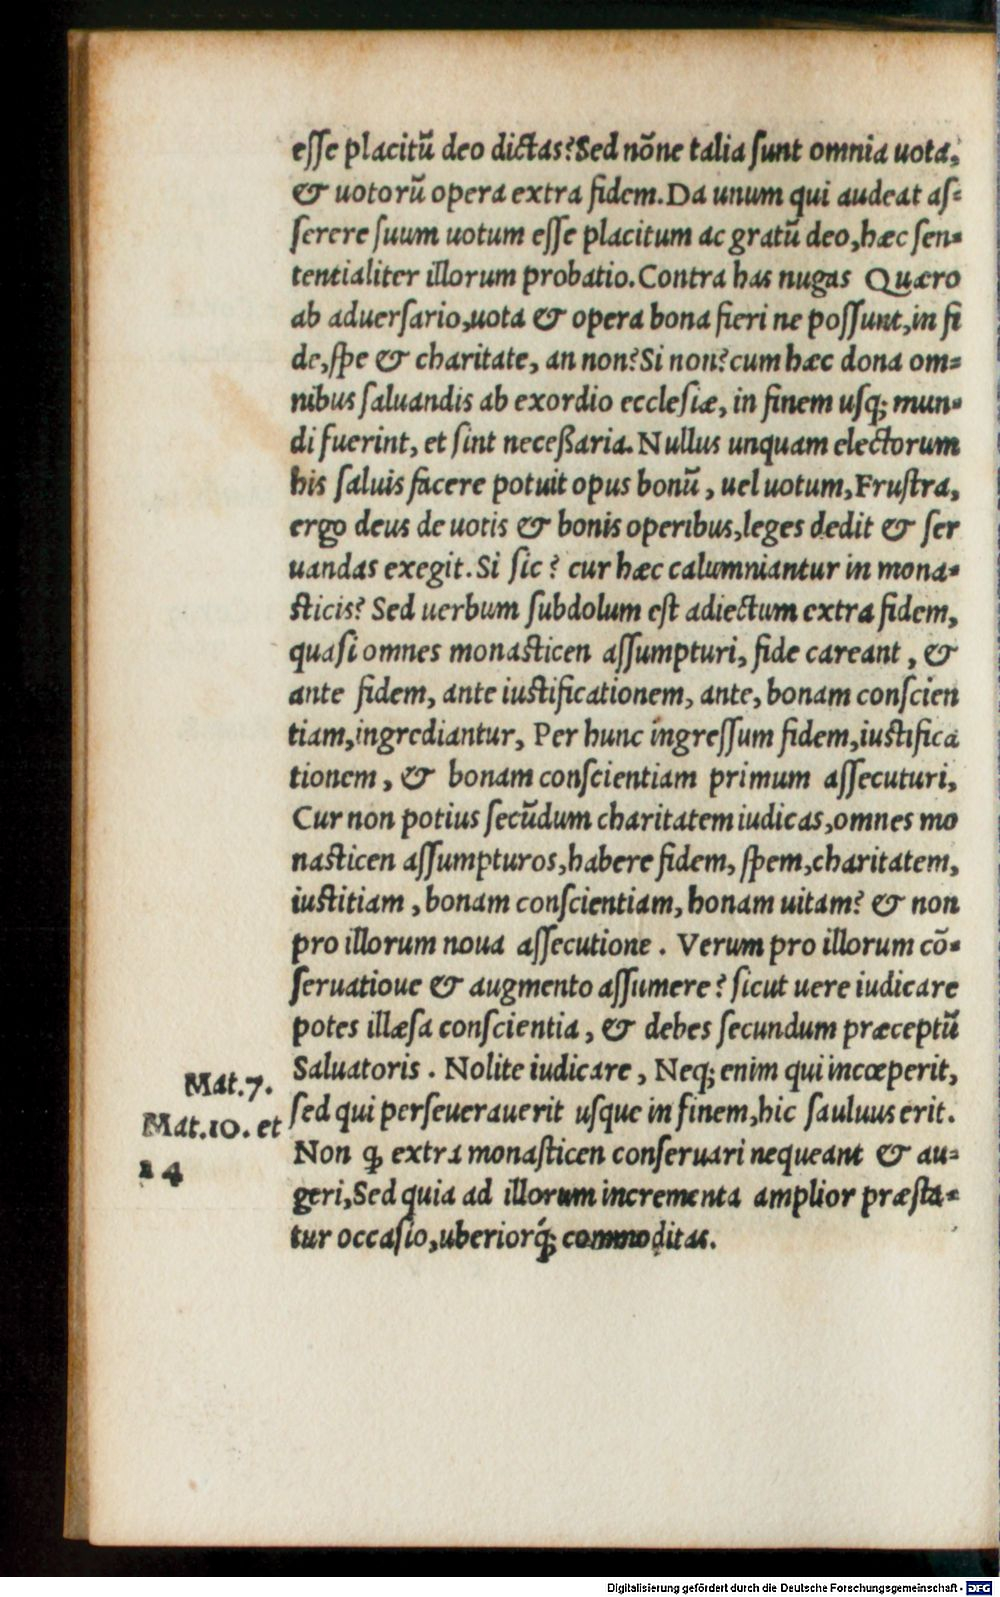 esse placitū deo dictas? Sed nōne talia sunt omnia uota,
& uotorū opera extra fidem. Da unum qui audeat as-
serere suum uotum esse placitum ac gratū deo, hæc sen-
tentialiter illorum probatio. Contra has nugas Quæro
ab aduersario, uota & opera bona fieri ne possunt, in fi
de, spe & charitate, an non? Si non? cum hæc dona om-
nibus saluandis ab exordio ecclesiæ, in finem usq; mun-
di fuerint, et sint necessaria. Nullus unquam electorum
his saluis facere potuit opus bonū, uel uotum, Frustra,
ergo deus de uotis & bonis operibus, leges dedit & ser
uandas exegit. Si sic? cur hæc calumniantur in mona-
sticis? Sed uerbum subdolum est adiectum extra fidem,
quasi omnes monasticen assumpturi, fide careant, &
ante fidem, ante iustificationem, ante, bonam conscien
tiam, ingrediantur, Per hunc ingressum fidem, iustifica
tionem, & bonam conscientiam primum assecuturi,
Cur non potius secūdum charitatem iudicas, omnes mo
nasticen assumpturos, habere fidem, spem, charitatem,
iustitiam, bonam conscientiam, bonam uitam? & non
pro illorum noua assecutione. Verum pro illorum cō-
seruatioue & augmento assumere? sicut uere iudicare
potes illæsa conscientia, & debes secundum præceptū
Saluatoris. Nolite iudicare, Neq; enim qui incœperit,
Mat.7.
sed qui perseuerauerit usque in finem, hic sauluus erit.
Mat.10. et
Non ꝙ extra monasticen conseruari nequeant & au-
24
geri, Sed quia ad illorum incrementa amplior præsta-
tur occasio, uberiorq́; commoditas.
Digitalisierung gefördert durch die Deutsche Forschungsgemeinschaft - DFG